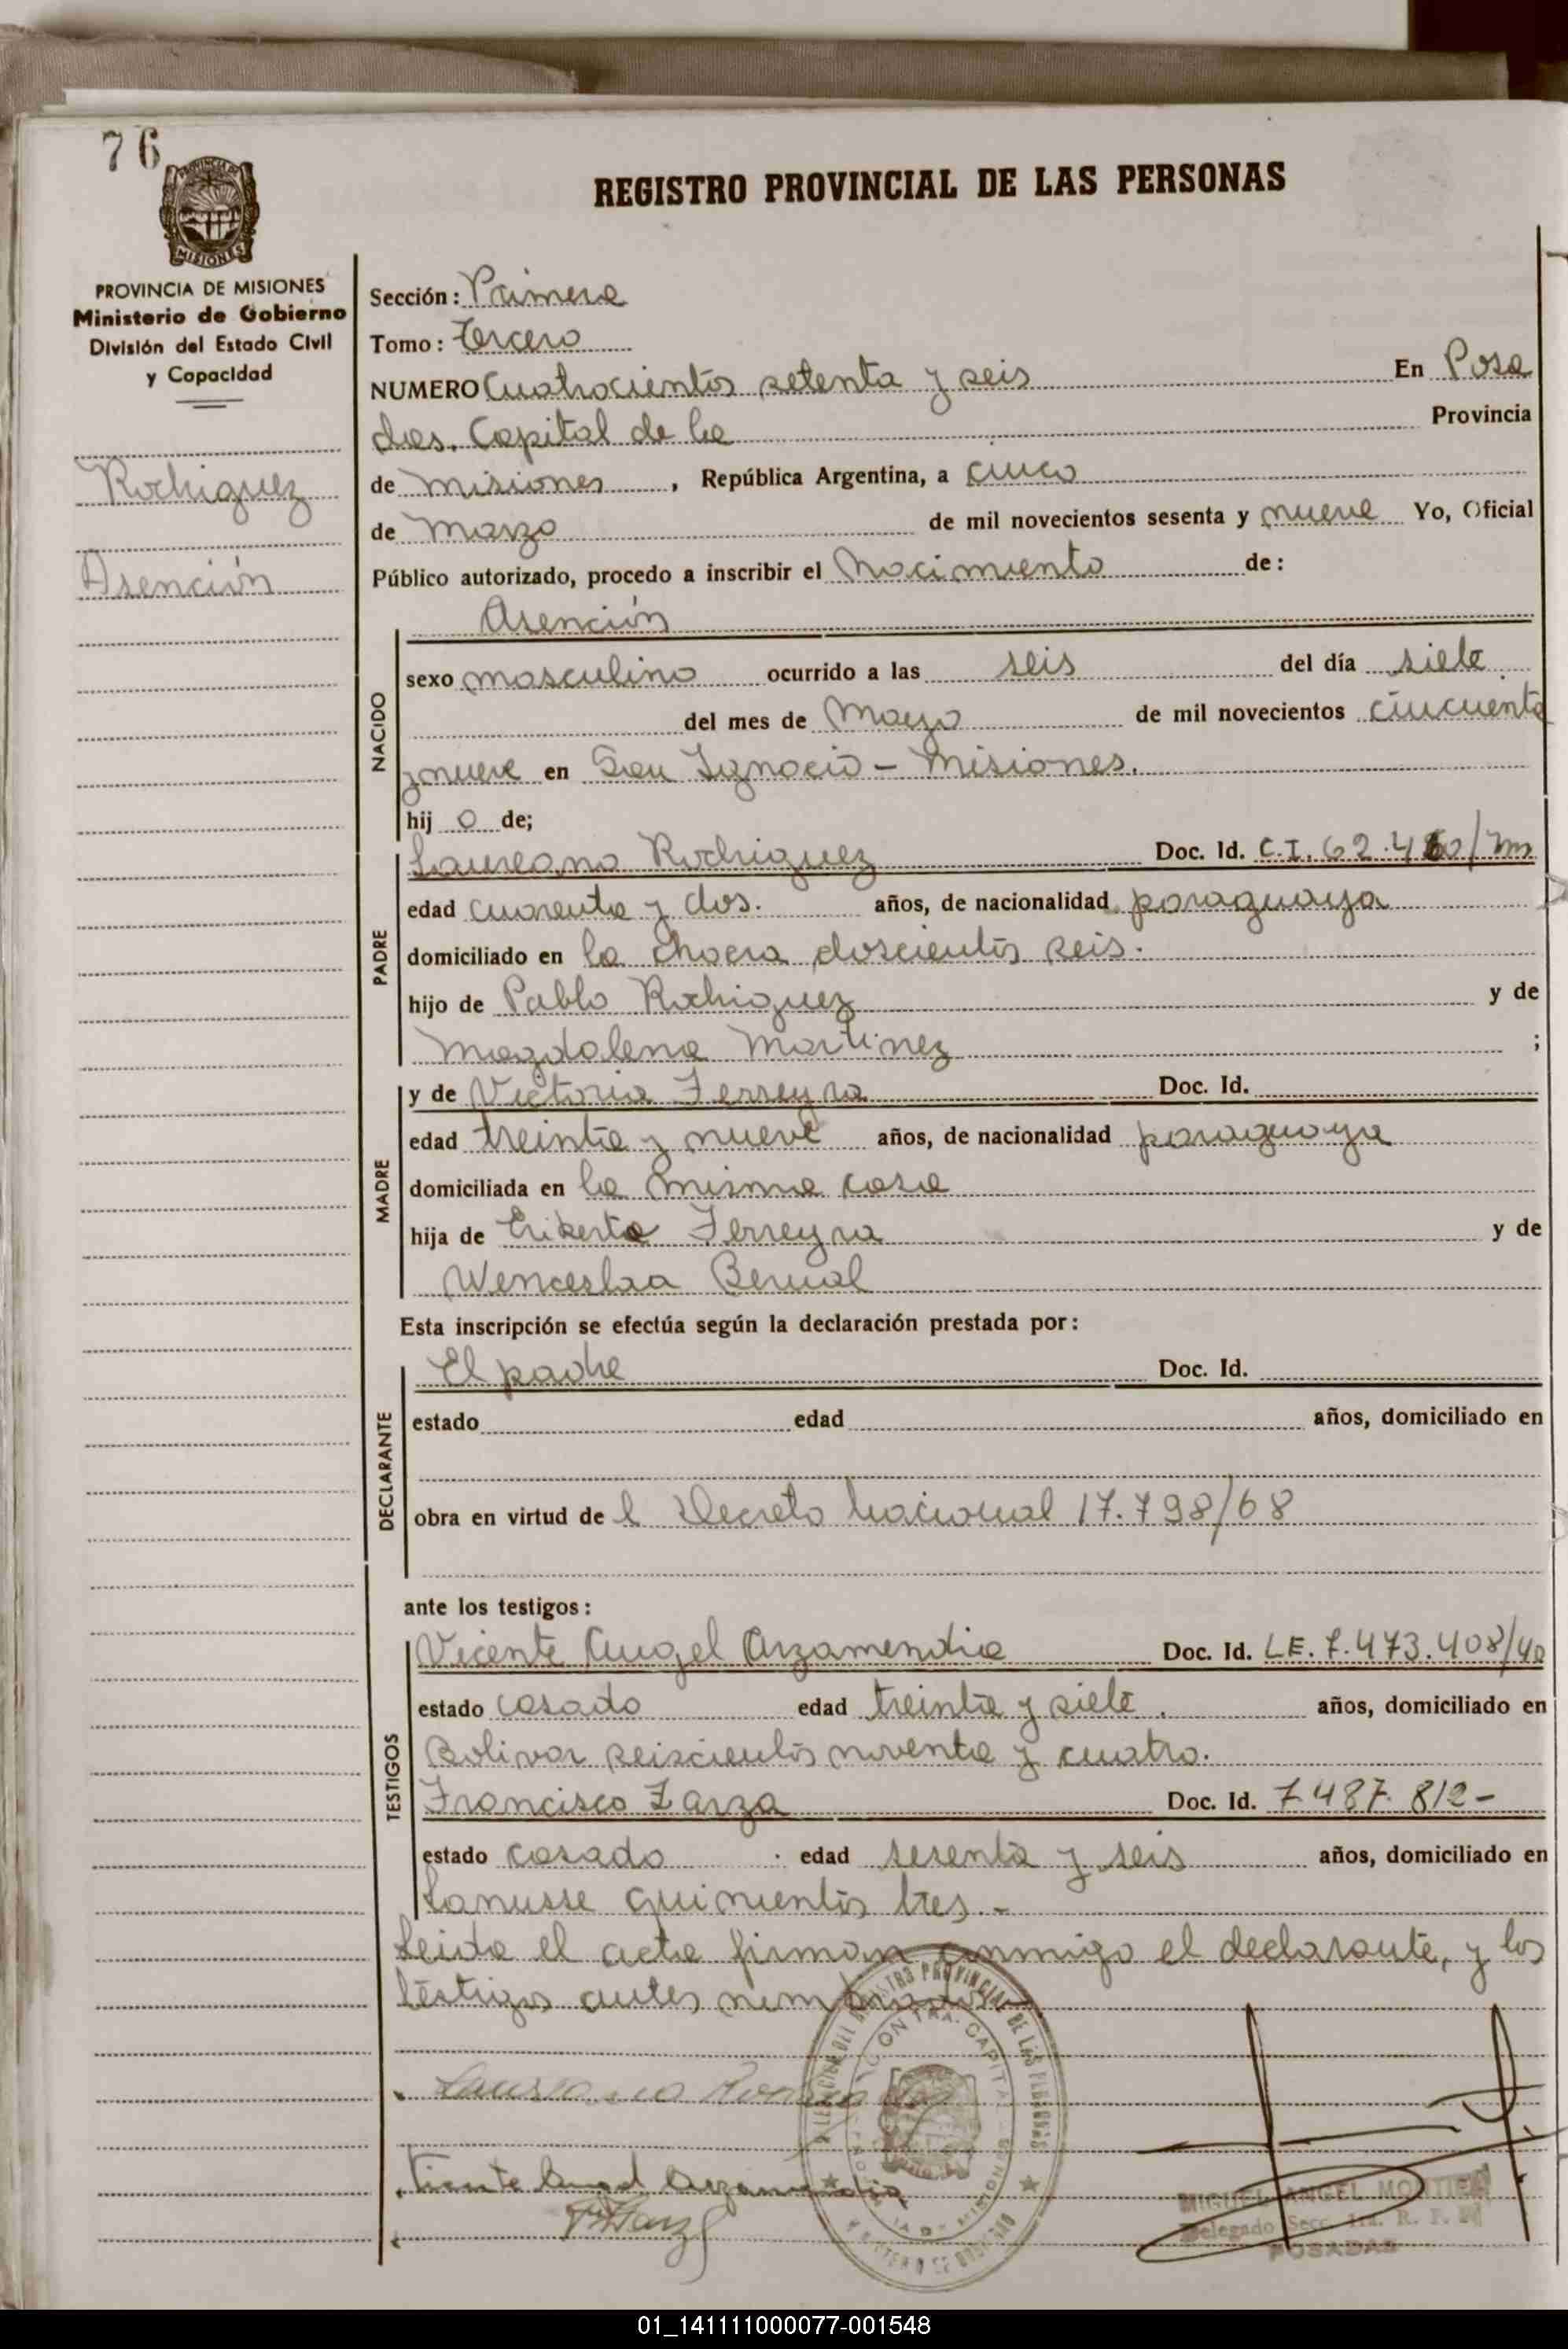 76
REGISTRO PROVINCIAL DE LAS PERSONAS
PROVINCIA DE MISIONES
Ministerio de Gobierno
División del Estado Civil
y Capacidad
Rodriguez
Asención
Sección: Primera
Tomo: tercero
NUMERO Cuatrocientos setenta y seis En Posa
das. Capital de la Provincia
de Misiones, República Argentina, a cinco
de Marzo de mil novecientos sesenta y nueve Yo, Oficial
Público autorizado, procedo a inscribir el Nacimiento de:
Asención
NACIDO
sexo masculino ocurrido a las seis del día siete
del mes de Mayo de mil novecientos cincuenta
y nueve en San Ignacio - Misiones.
hij o de;
PADRE
Laureano Rodriguez Doc. Id. C.I. 62.480/Mm
edad cuarenta y dos. años, de nacionalidad paraguaya
domiciliado en la chacra doscientos seis.
hijo de Pablo Rodriguez y de
Magdalena Martinez ;
MADRE
y de Victoria Ferreyra Doc. Id.
edad treinta y nueve años, de nacionalidad paraguaya
domiciliada en la misma casa
hija de Eriberto Ferreyra y de
Wenceslaa Bernal
Esta inscripción se efectúa según la declaración prestada por:
DECLARANTE
El padre Doc. Id.
estado edad años, domiciliado en
obra en virtud de l Decreto Nacional 17.798/68
ante los testigos:
TESTIGOS
Vicente Angel Arzamendia Doc. Id. L.E. 7.473.408/40
estado casado edad treinta y siete. años, domiciliado en
Bolivar seiscientos noventa y cuatro.
Francisco Zarza Doc. Id. 7487.812-
estado casado edad sesenta y seis años, domiciliado en
Lanusse quinientos tres.-
Leida el acta firman conmigo el declarante, y los
testigos antes nombrados
Laureano Rodriguez
Vicente Angel Arzamendia
FZarza
MIGUEL ANGEL MONTIEL
Delegado Secc. 1ra. R. P. P.
POSADAS
01_141111000077-001548